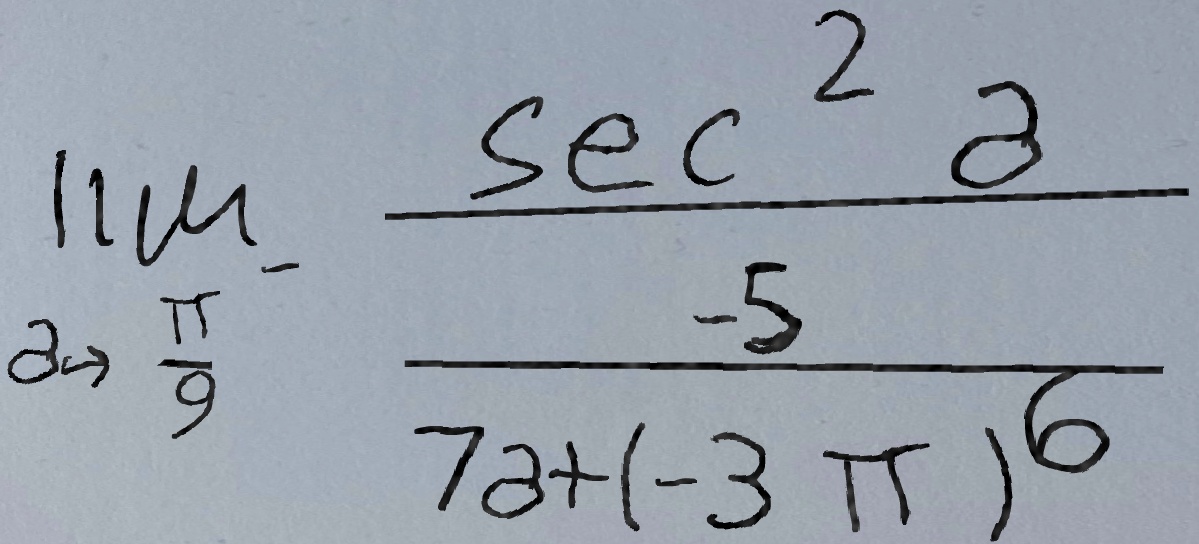 \lim_{a \to \frac{\pi}{9}^-} \frac{\sec^2 a}{\frac{-5}{7a+(-3\pi)^6}}